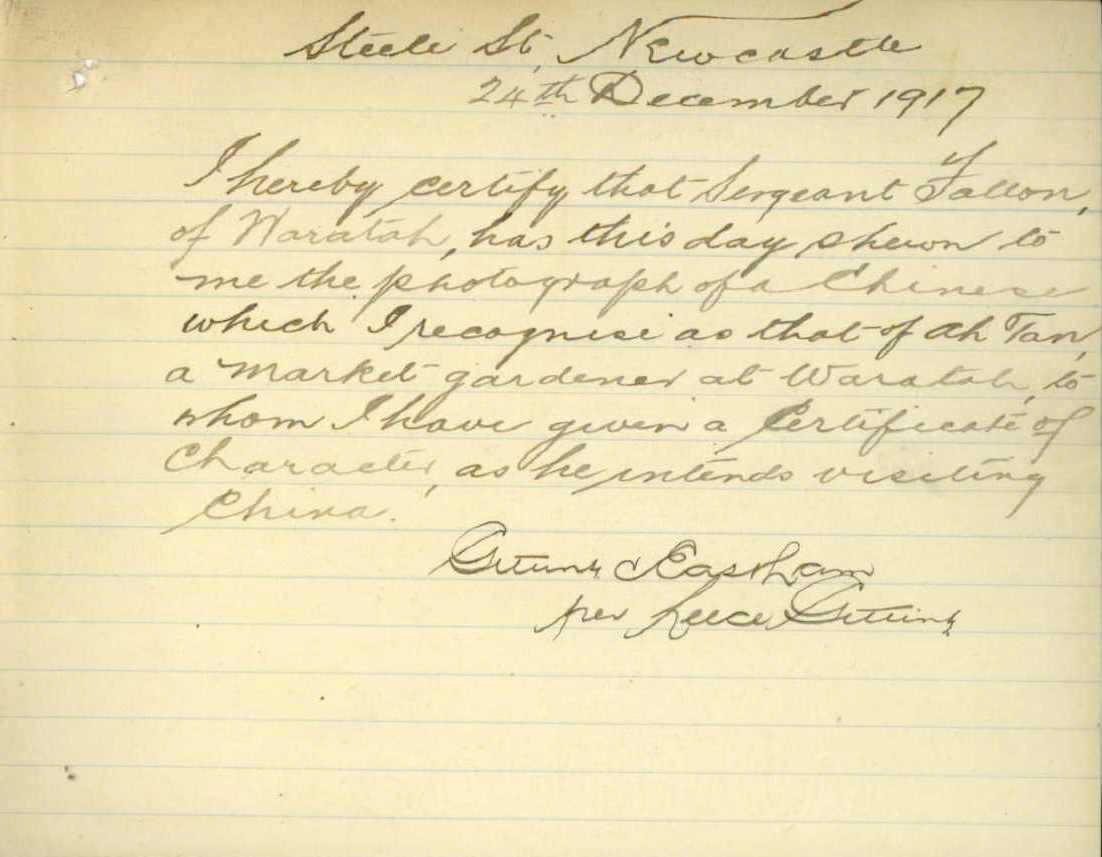 Steele St, Newcastle
24th December 1917
I hereby certify that Sergeant Fallon,
of Waratah, has this day shewn to
me the photograph of a Chinese
which I recognise as that of Ah Tan,
a market gardener at Waratah, to
whom I have given a Certificate of
Character, as he intends visiting
China.
& Eastham
per Reece